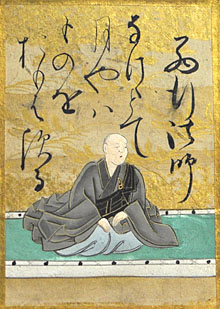 西行法師
なけけとて
月やハ
ものを
おもはする